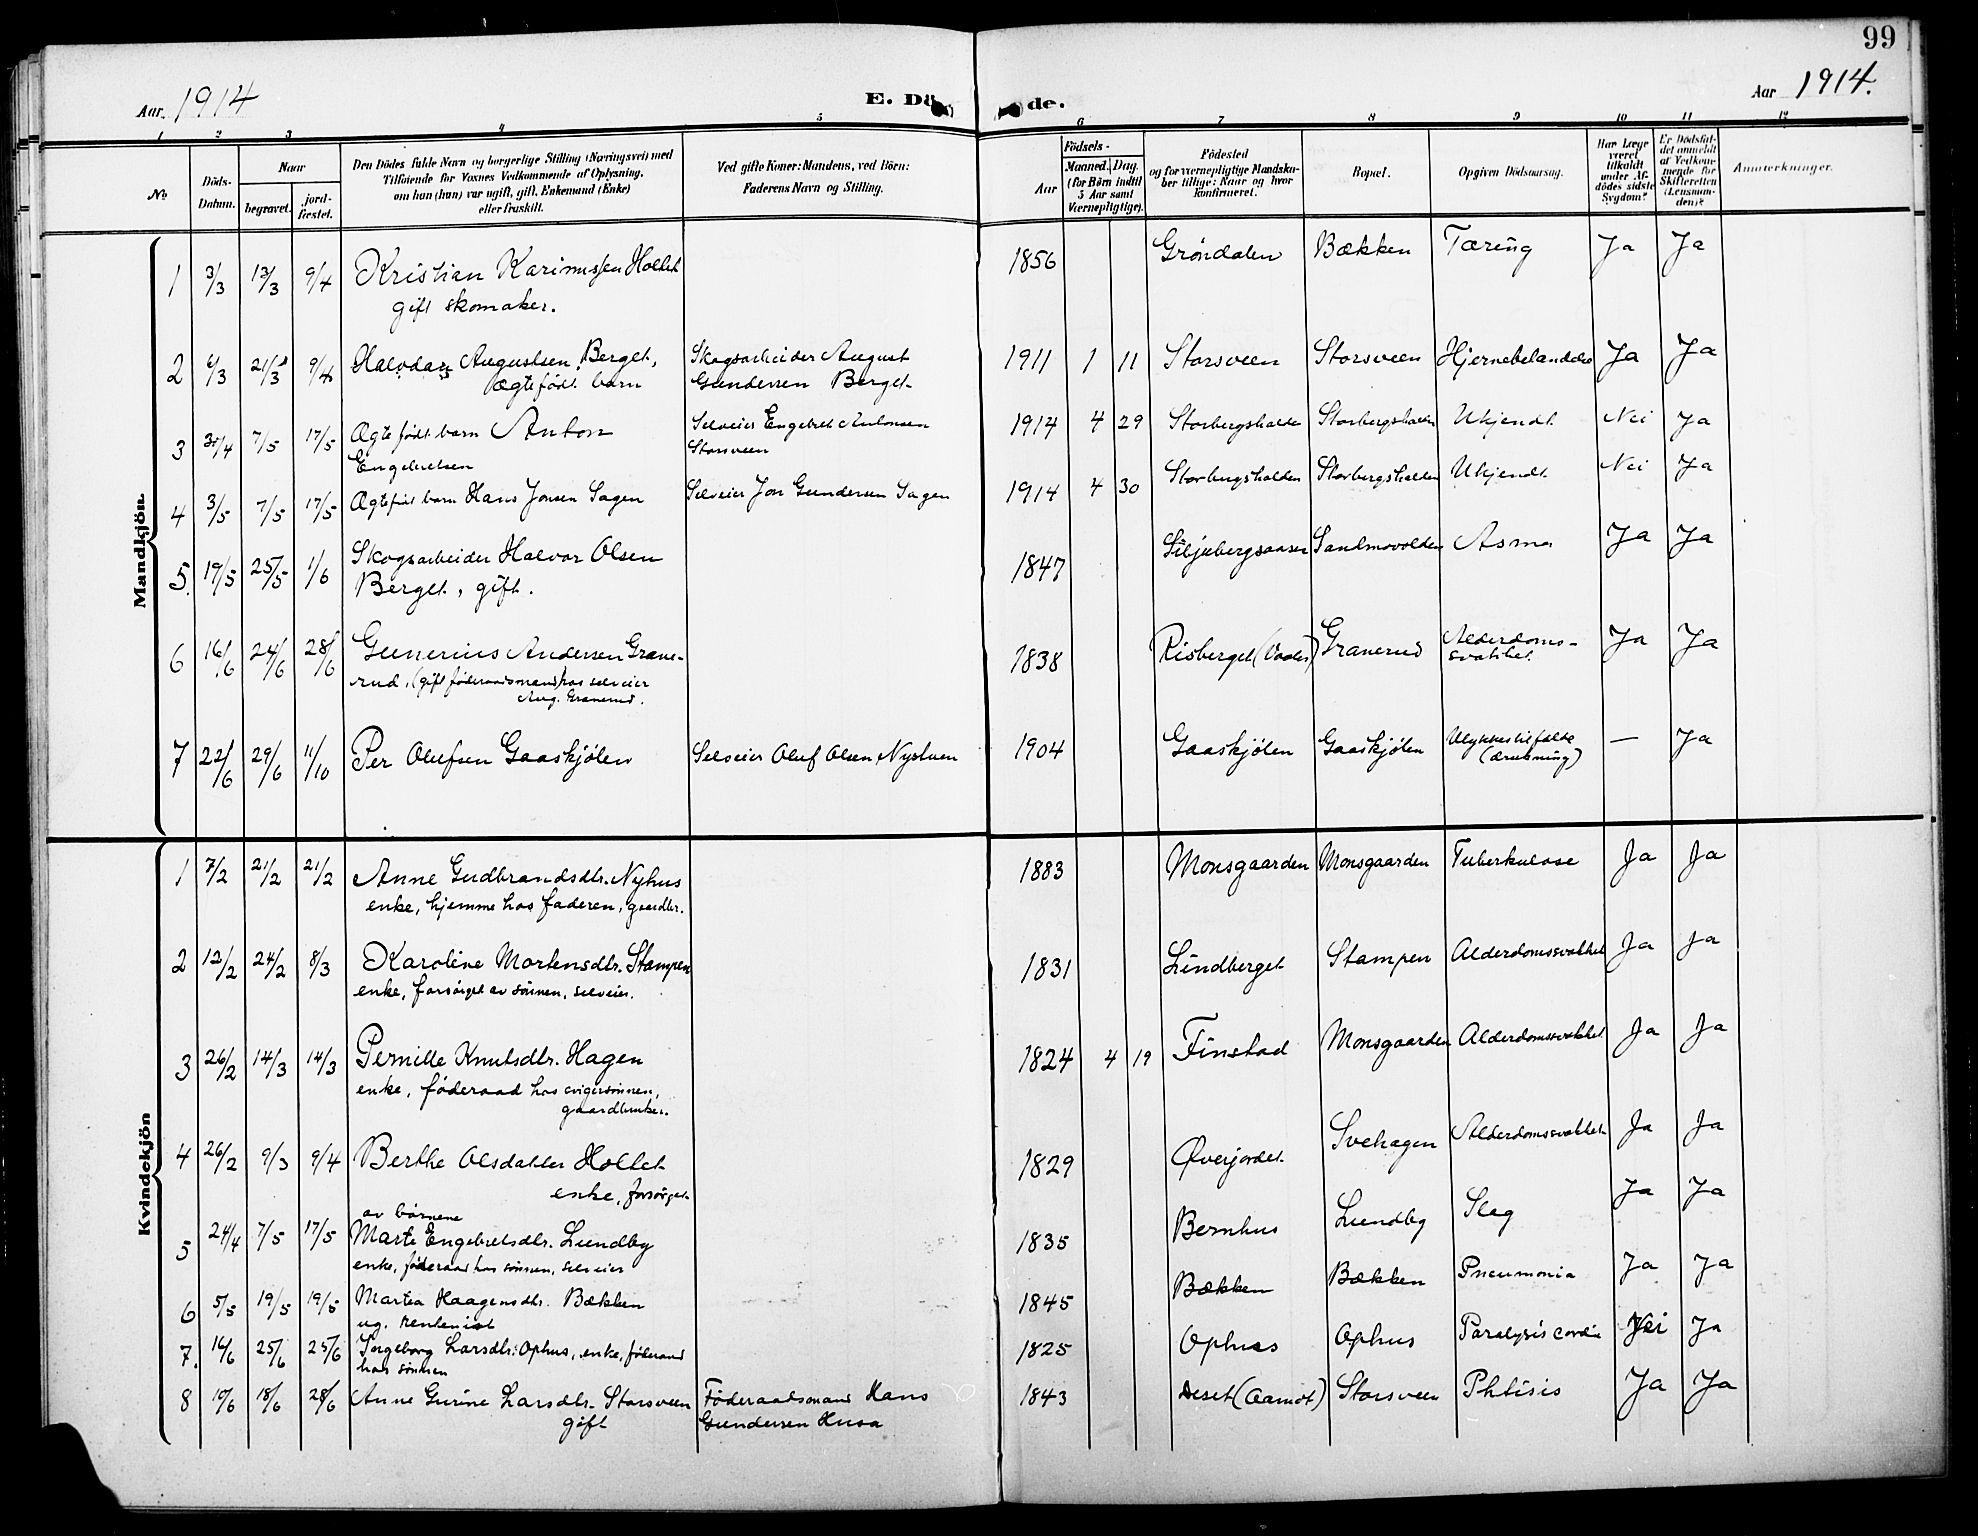 99
Aar. 1914
E. Dö de.
Aar 1914.
1 2 3 4 5 6 7 8 9 10 11 12
No.
Döds-Datum.
Naar
begravet.
jord-fæstet.
Den Dödes fulde Navn og borgerlige Stilling (Næringsvei) med
Tilföiende for Voxnes Vedkommende af Oplysning,
om han (hun) var ugift, gift, Enkemand (Enke)
eller fraskilt.
Ved gifte Koner: Mandens, ved Börn:
Faderens Navn og Stilling.
Födsels-
Aar
Maaned. Dag.
(for Börn indtil
5 Aar samt
Værnepligtige).
Födested
og for værnepligtige Mandska-
ber tillige: Naar og hvor
konfirmeret.
Bopæl.
Opgiven Dödsaarsag.
Har Læge
været
tilkaldt
under Af-
dödes sidste
Sygdom?
Er Dödsfal-
det anmeldt
af Vedkom-
mende for
Skifteretten
(Lensman-
den)?
Anmærkninger.
Mandkjön.
1 3/3 13/3 9/4 Kristian Karinussen Holtet 1856 Grøndalen Bækken Tæring Ja Ja
gift skomaker.
2 6/3 21/3 9/4 Halvdan Augustsen Berget, Skogsarbeider August 1911 1 11 Storsveen Storsveen Ja Ja
ægtefødt barn Gundersen Berget
3 30/4 7/5 17/5 Ægtefødt barn Anton Selveier Engebret Antonsen 1914 4 29 Storbergshalden Storbergshalden Ukjendt Nei Ja
Engebretsen Storsveen
4 3/5 7/5 17/5 Ægtefødt barn Hans Jonsen Sagen Selveier Jon Gundersen Sagen 1914 4 30 Storbergshalden Storbergshalden Ukjendt Nei Ja
5. 19/5 25/5 1/6 Skogsarbeider Halvor Olsen 1847 Siljubergsaasen Sandmovolden Asma Ja Ja
Berget, gift.
6 16/6 24/6 28/6 Gunerius Andersen Grane- 1838 Risberget (Vaaler) Granerud Alderdoms- Ja Ja
rud, (gift føderaadsmand) hos selveier svakhet
Aug. Granerud.
7 22/6 29/6 11/10 Per Olufsen Gaaskjølen Selveier Oluf Olsen Nystuen 1904 Gaaskjølen Gaaskjølen Ulykkestilfælde — Ja
(drukning)
Kvindekjön
1 7/2 21/2 21/2 Anne Gudbrandsdtr. Nyhus 1883 Monsgaarden Monsgaarden Tuberkulose Ja Ja
enke, hjemme hos faderen, gaardbr.
2 12/2 24/2 8/3 Karoline Mortensdtr. Stampen 1831 Lindberget Stampen Alderdomssvakhet Ja Ja
enke, forsørget av sønnen, selveier.
3 26/2 14/3 14/3 Pernille Knutsdtr. Hagen 1824 4 19 Finstad Monsgaarden Alderdomssvakhet Ja Ja
enke, føderaad hos svigersønnen,
gaardbruker.
4 26/2 9/3 9/4 Berthe Olsdatter Holtet 1829 Øverjordet Svehagen Alderdomssvakhet Ja Ja
enke, forsørget
av børnene
5 24/4 7/5 17/5 Marte Engebretsdtr. Lundby 1835 Bernhus Lundby Slag Ja Ja
enke, føderaad hos sønnen, selveier
6 5/5 19/5 19/5 Martea Haagensdtr. Bækken 1845 Bækken Bækken Pneumonia Ja Ja
ug. rentenist
7. 16/6 25/6 25/6 Ingeborg Larsdtr. Ophus, enke, føderaad 1825 Ophus Ophus Paralysis cordis Nei Ja
hos sønnen
8 10/6 18/6 28/6 Anne Gurine Larsdtr. Storsveen Føderaadsmand Hans 1843 Deset (Aamot) Storsveen Phtisis Ja Ja
gift Gundersen Husa